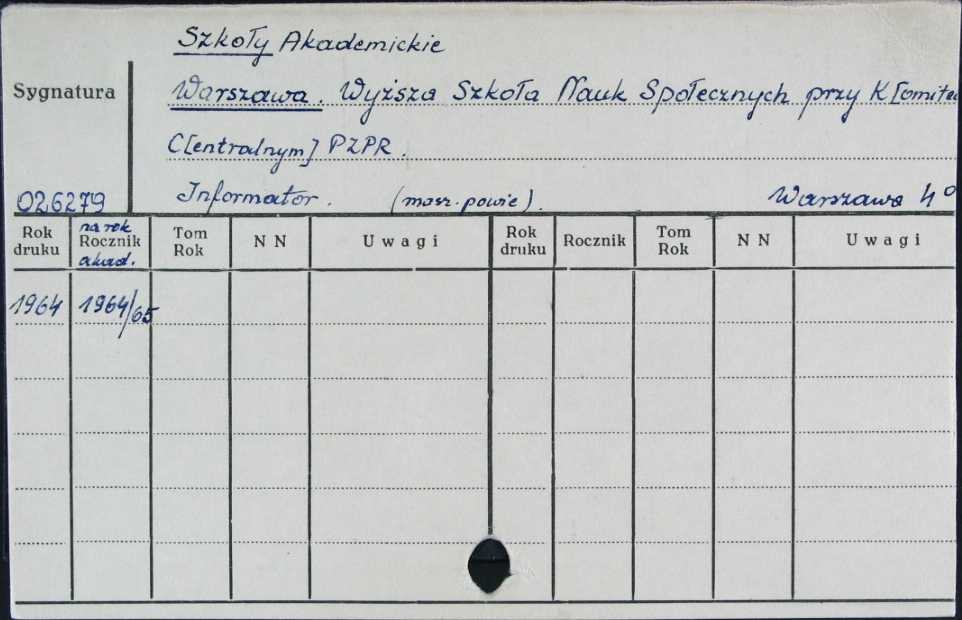 Szkoły Akademickie
Sygnatura
Warszawa. Wyższa Szkoła Nauk Społecznych przy K[omite
C[entralnym] PZPR.
026279
Informator. (masz. powie). Warszawa 4°
Rok druku na rok Rocznik akad. Tom Rok NN Uwagi Rok druku Rocznik Tom Rok NN Uwagi
1964 1964/65